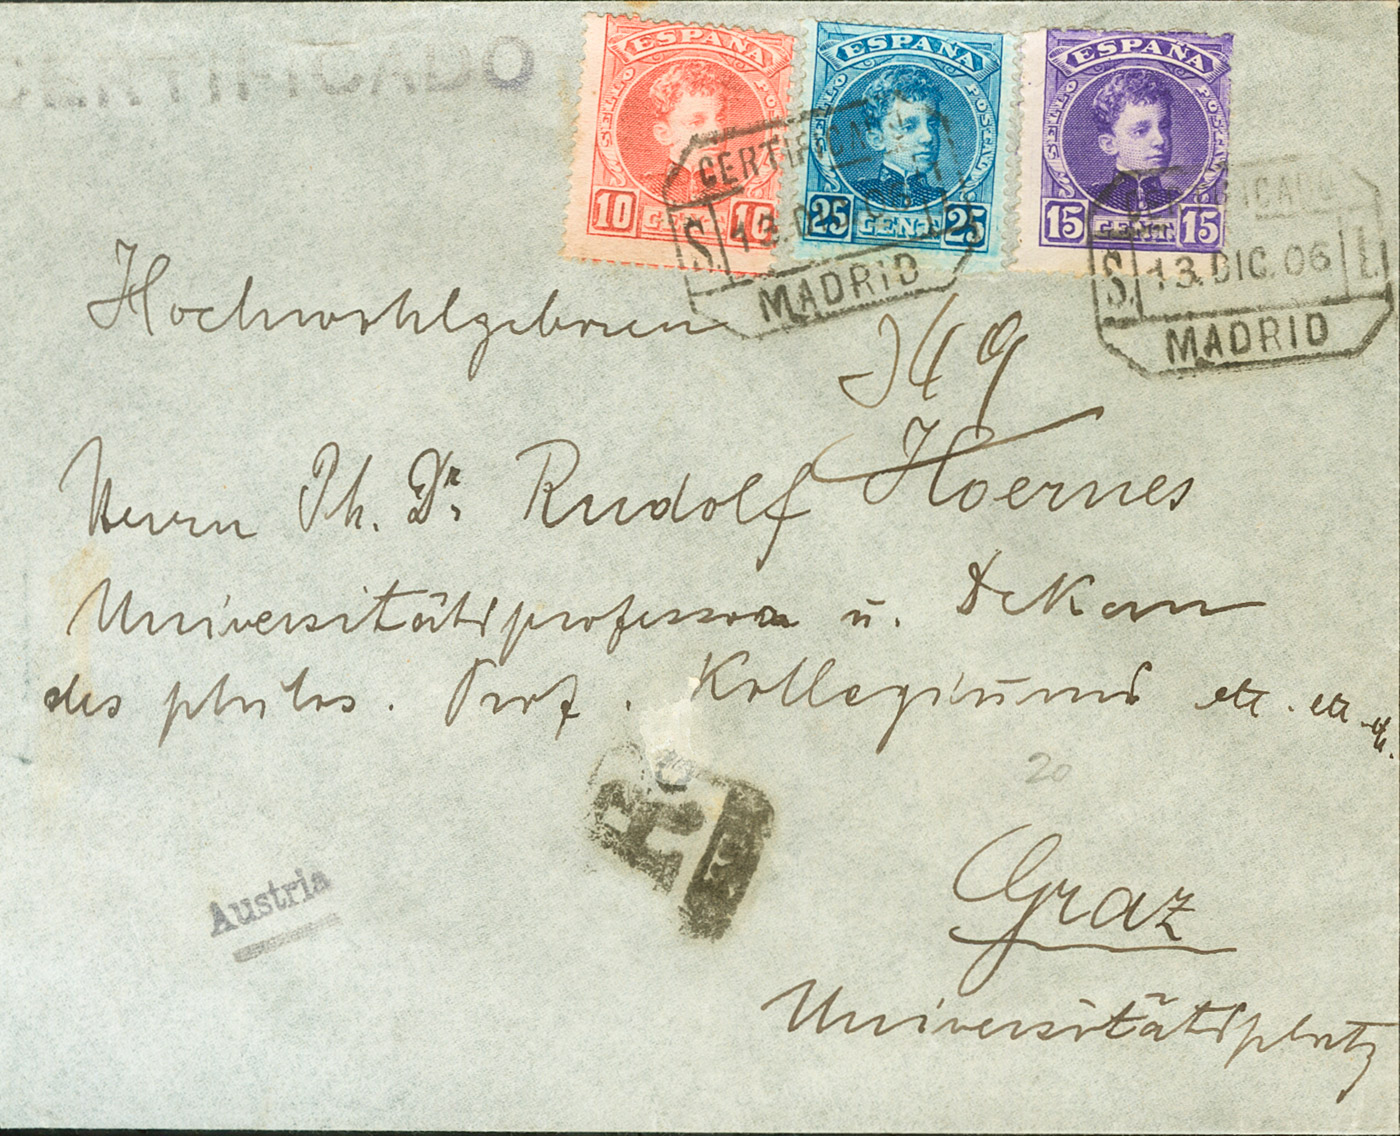 CERTIFICADO
ESPAÑA
SELLO POSTAL
10 CENT. 10
ESPAÑA
SELLO POSTAL
25 CENT. 25
ESPAÑA
SELLO POSTAL
15 CENT. 15
CERTIFICADO
S. 13.DIC.06 L.
MADRID
CERTIFICADO
S. 13.DIC.06 L.
MADRID
Hochwohlgeboren
Herrn Ph. Dr. Rudolf Hoernes
Universitätsprofessor u. Dekan
des philos. Prof. Kollegiums etc. etc. etc.
R
20
Austria
Graz
Universitätsplatz